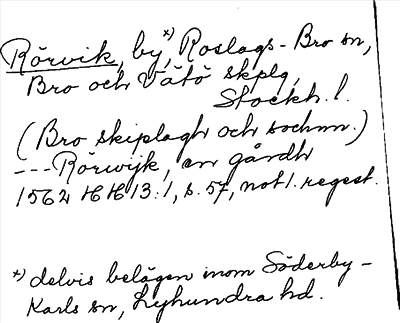 Rörvik, by *) Roslags-Bro sn,
Bro och Vätö skplg,
Stockh. l.
(Bro skiplagh och sochnn.)
--- Rörwijk, en gårdh
1562 HH 13:1, s. 57, not 1. regest.
*) delvis belägen inom Söderby-
Karls sn, Lyhundra hd.